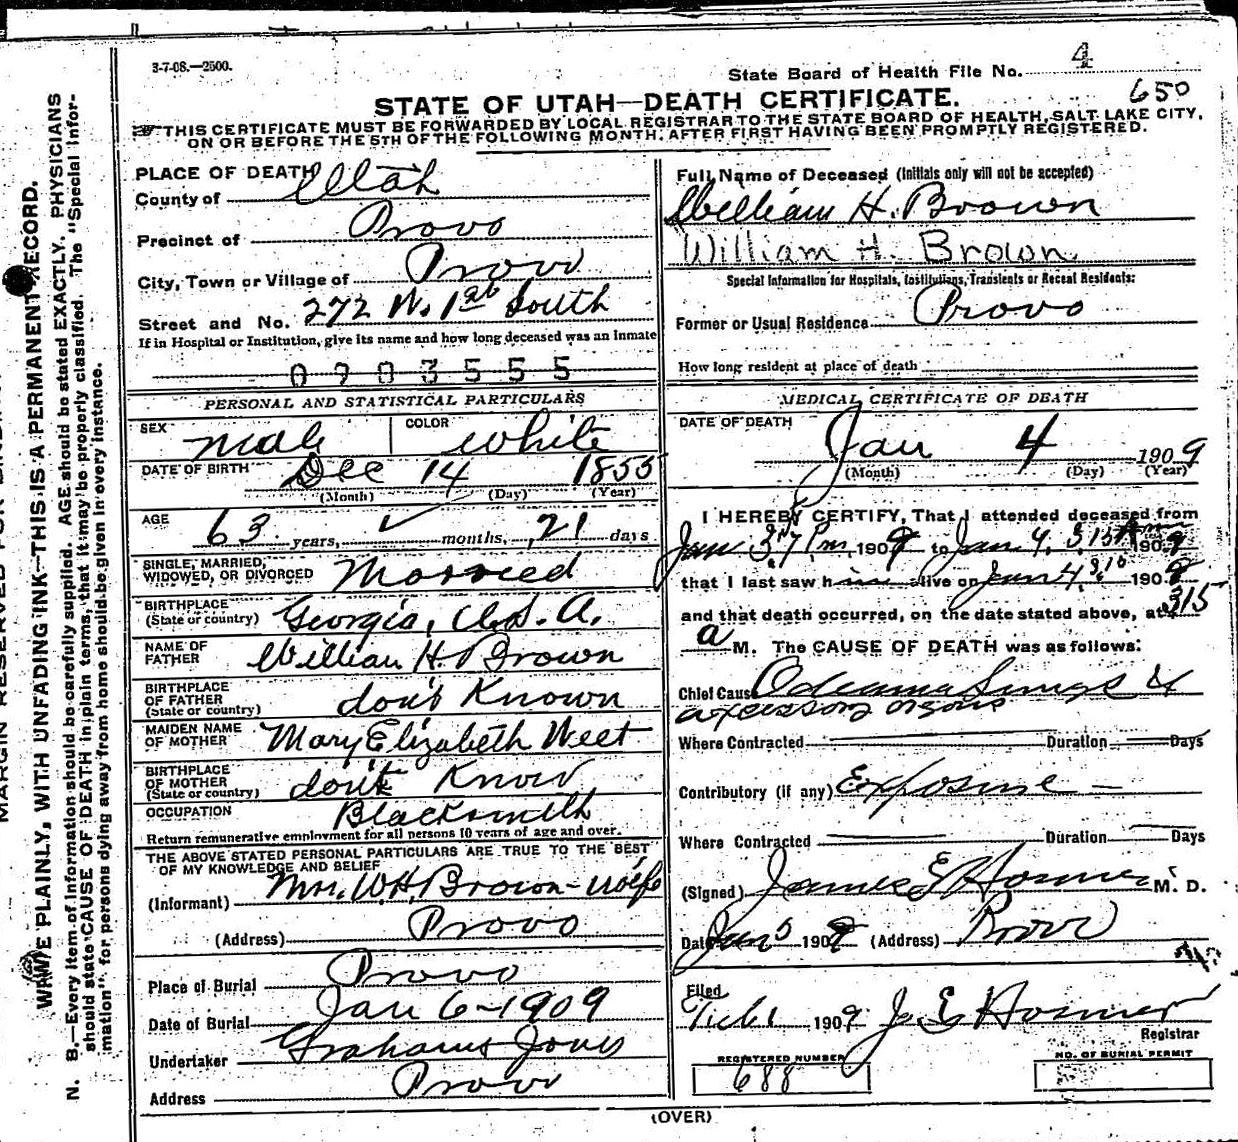 3-7-08.—2500.
State Board of Health File No. 4
650
STATE OF UTAH—DEATH CERTIFICATE.
THIS CERTIFICATE MUST BE FORWARDED BY LOCAL REGISTRAR TO THE STATE BOARD OF HEALTH, SALT LAKE CITY,
ON OR BEFORE THE 5TH OF THE FOLLOWING MONTH, AFTER FIRST HAVING BEEN PROMPTLY REGISTERED.
WRITE PLAINLY, WITH UNFADING INK—THIS IS A PERMANENT RECORD.
N. B.—Every item of information should be carefully supplied. AGE should be stated EXACTLY. PHYSICIANS
should state CAUSE OF DEATH in plain terms, that it may be properly classified. The "Special Infor-
mation" for persons dying away from home should be given in every instance.
MARGIN RESERVED FOR
PLACE OF DEATH
County of Utah
Precinct of Provo
City, Town or Village of Provo
Street and No. 272 W. 1st South
If in Hospital or Institution, give its name and how long deceased was an Inmate
0703555
PERSONAL AND STATISTICAL PARTICULARS
SEX male COLOR white
DATE OF BIRTH Dec 14 1855
(Month) (Day) (Year)
AGE 63 years, months, 21 days
SINGLE, MARRIED,
WIDOWED, OR DIVORCED Married
BIRTHPLACE
(State or country) Georgia, U.S.A.
NAME OF
FATHER William H. Brown
BIRTHPLACE
OF FATHER
(State or country) don't Known
MAIDEN NAME
OF MOTHER Mary Elizabeth West
BIRTHPLACE
OF MOTHER
(State or country) don't Know
OCCUPATION Blacksmith
Return remunerative employment for all persons 10 years of age and over.
THE ABOVE STATED PERSONAL PARTICULARS ARE TRUE TO THE BEST
OF MY KNOWLEDGE AND BELIEF
(Informant) Mrs. W.H. Brown - wife
(Address) Provo
Place of Burial Provo
Date of Burial Jan 6-1909
Undertaker Grahams Jones
Address Provo
Full Name of Deceased (Initials only will not be accepted)
William H. Brown
William H. Brown.
Special Information for Hospitals, Institutions, Transients or Recent Residents:
Former or Usual Residence Provo
How long resident at place of death
MEDICAL CERTIFICATE OF DEATH
DATE OF DEATH Jan 4 1909
(Month) (Day) (Year)
I HEREBY CERTIFY, That I attended deceased from
Jan 3rd 7 Pm, 1909 to Jan 4. 315 Am 1909
that I last saw him alive on Jan 4 315 1909
and that death occurred, on the date stated above, at 315
a M. The CAUSE OF DEATH was as follows:
Chief Cause Odeama Lungs &
axcessory organs
Where Contracted Duration Days
Contributory (if any) Exposure
Where Contracted Duration Days
(Signed) James E Hosmer M. D.
Date Jan 5 1909 (Address) Provo
Filed
Feb 1 1909 J. E Hosmer
Registrar
REGISTERED NUMBER
688
NO. OF BURIAL PERMIT
(OVER)